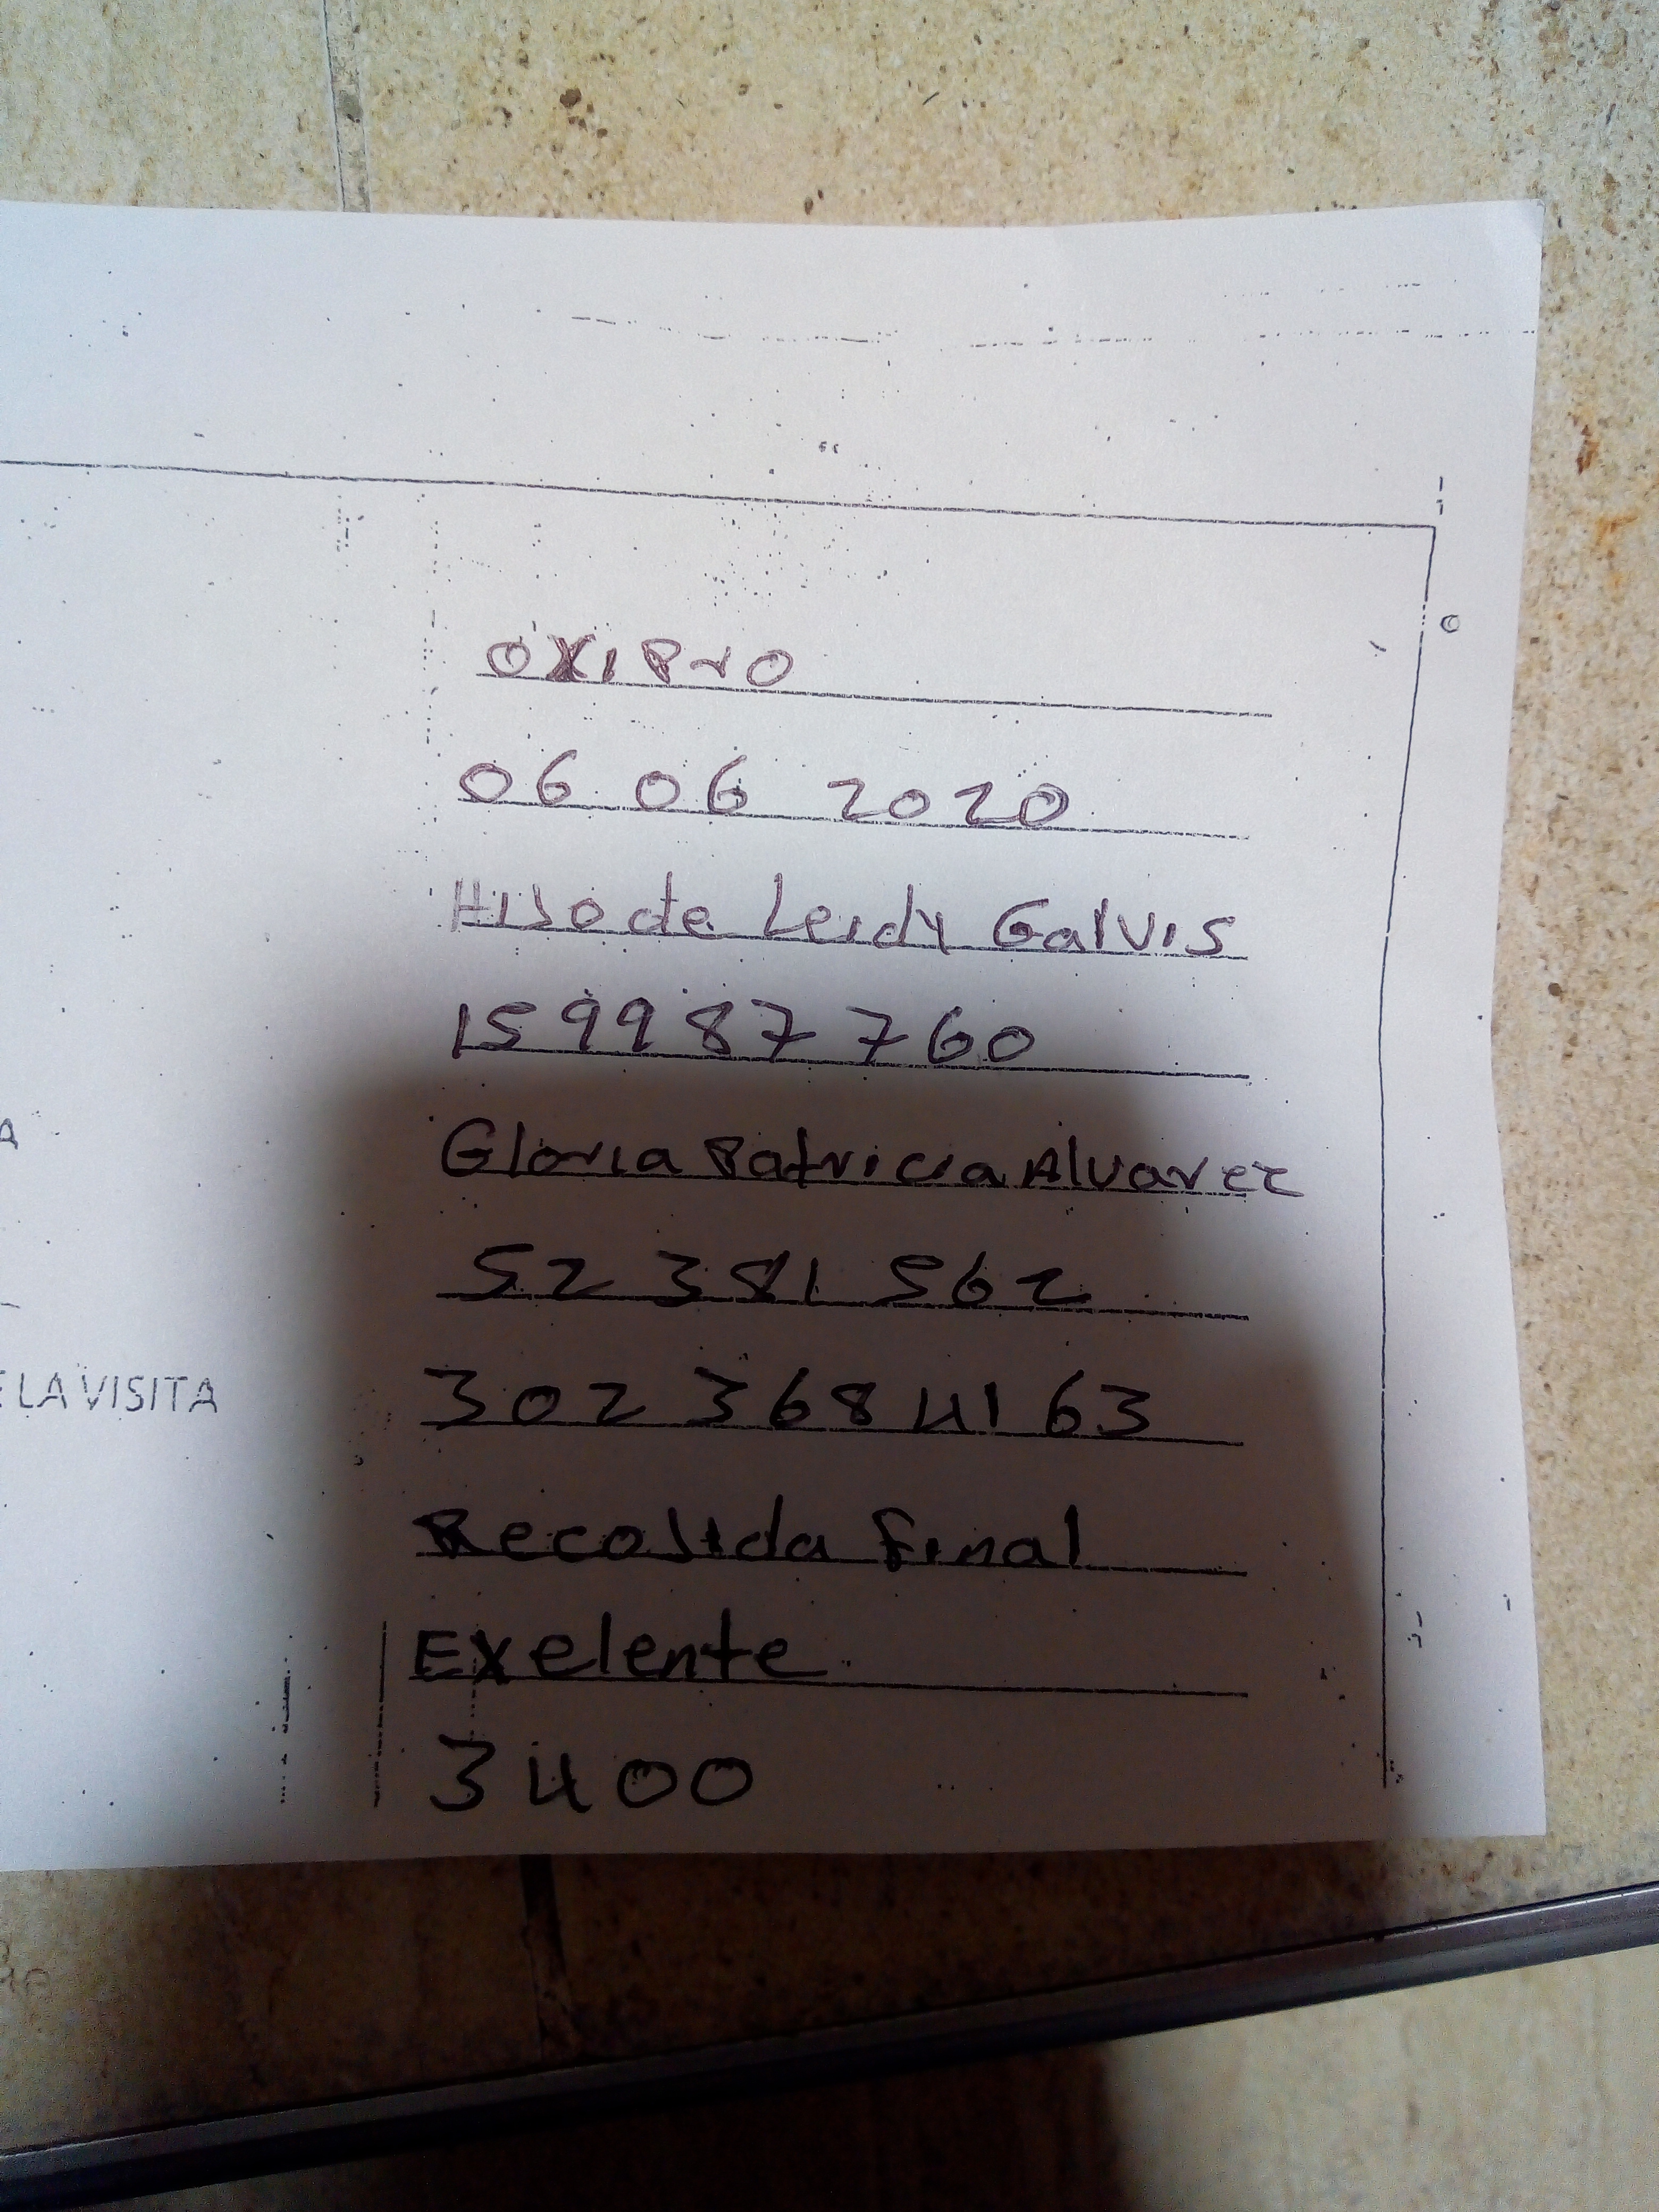 OXIPrO
06 06 2020
HIJO de Leidy Galvis
1599987760
Gloria Patricia Alvarez
52 381 562
302 368 41 63
Recojida Final
E LA VISITA
Exelente
3400